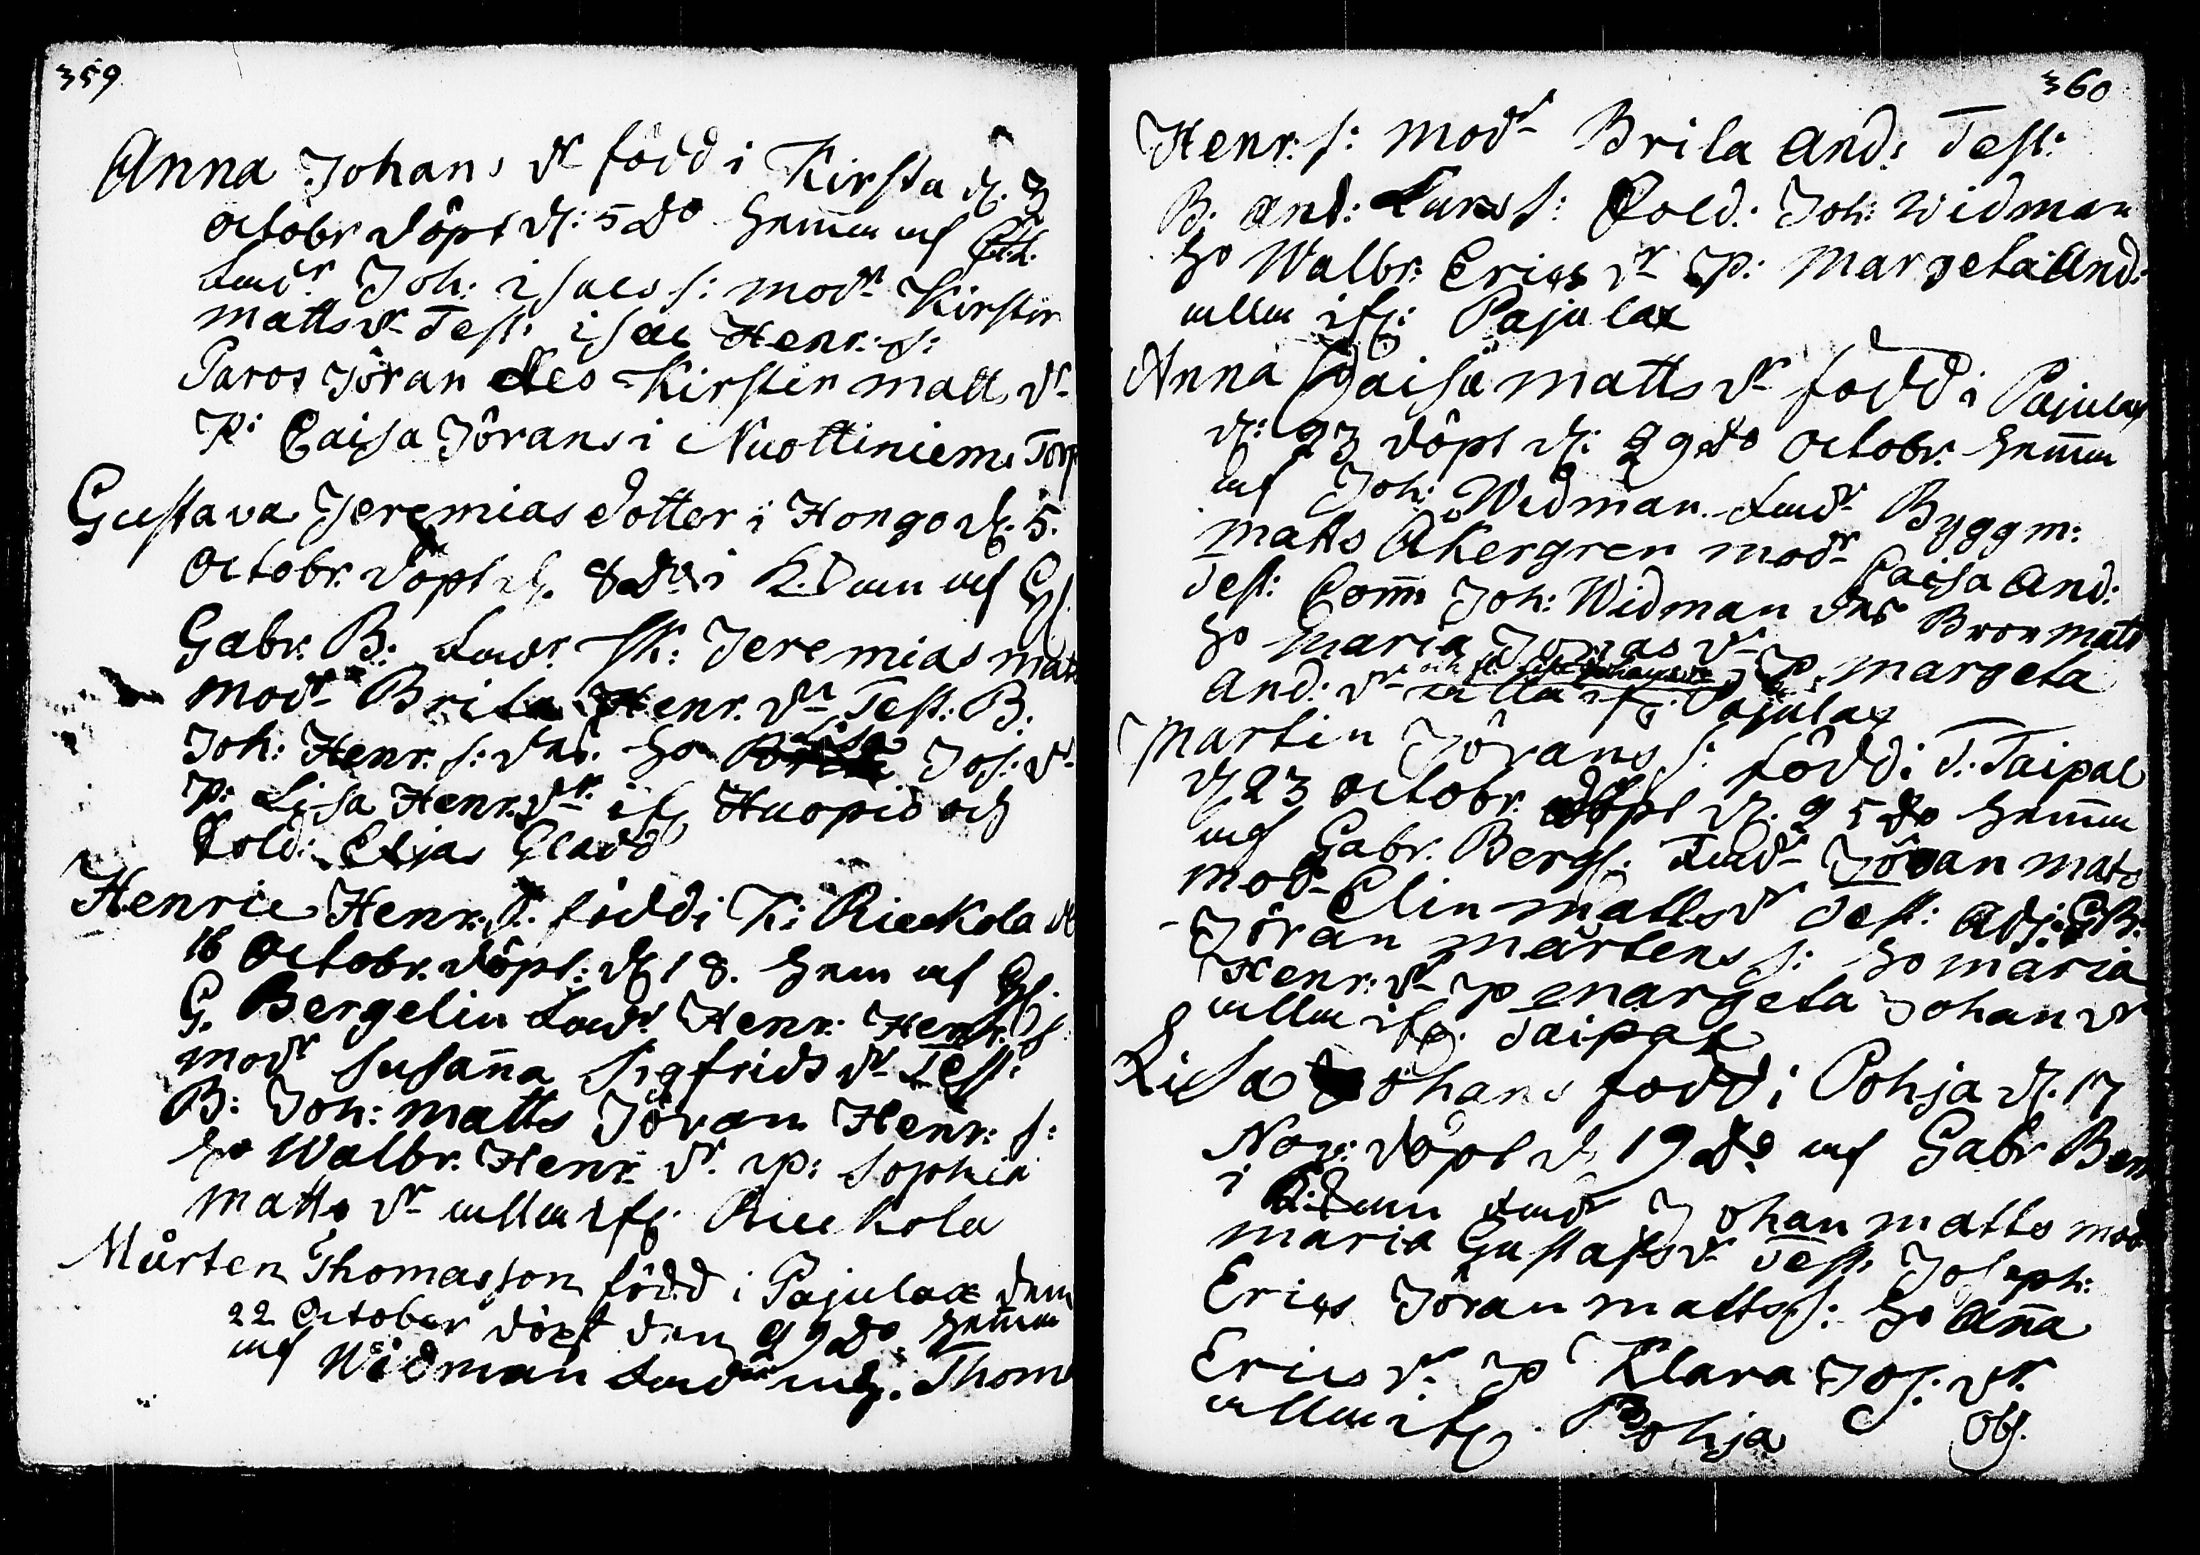 359
Anna Johans dr född i Kirsta d. 3
octobr döpt d: 5 do hemma af
fadr Joh: isacs s: modr Kirstin
matts dr Test: isac Henr: s:
Paros Jöran des Kirstin matts dr
P: Caisa Jörans i Nuottiniemi Torp
Gustava Jeremias dotter i Hongo d. 5.
Octobr. döpt d. 8 do i K. af
Gabr. B: fadr Sk: Jeremias mats
modr Brita Henr. dr Test: B.
Joh: Henr. s: des ho Lisa Jos: dr
P: Lisa Henr. dr if Huopio och
Sold: Elias Gladd
Henric Henr. s. född i K: Rieckola d
16 Octobr. döpt: d 18. hem af
G. Bergelin fadr Henr. Henr. s
modr Susanna Sigfrids dr Test:
B: Joh: matts Jöran Henr: s:
ho Walbr. Henr. dr. p: Sophia
matts dr alla if: Rieckola
Mårten Thomasson född i Pajulax den
22 October döpt den 29 do hemma
af Widman fadr Thom
360
Henr: s: modr Brita And: Test:
B. And: Lars s: Sold: Joh: Widman
ho Walbr: Erics dr P: Margeta And:
alla if: Pajulax
Anna Caisa matts dr född i Pajulax
d: 23 döpt d: 29 do octobr. hemma
af Joh: Widman fadr Byggm:
matts Åkergren modr Caisa And:
Test: Comm Joh: Widman des Bror matts
ho Maria Jonas dr P. Margeta
And: dr alla if: Pajulax
Martin Jörans s: född i T. Taipal
d 23 octobr. döpt d. 25 do hemma
af Gabr. Bergs. fadr Jöran mats
modr Elin matts dr Test: Adj: GB.
Jöran mårtens s: ho maria
Henr: dr p margeta Johan dr
alla if: Taipal
Lisa Johans född i Pohja d. 17
Nov: döpt d 19 do af Gabr Ber
i K: fadr Johan matts mod
maria Gustafs dr Test: Joseph:
Erics Jöran matts s: ho Anna
Erics dr p Klara Jos: dr.
alla if. Pohja
Obs.